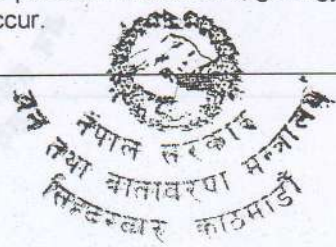 ccur.
नेपाल सरकार
वन तथा वातावरण मन्त्रालय
सिंहदरबार काठमाडौं